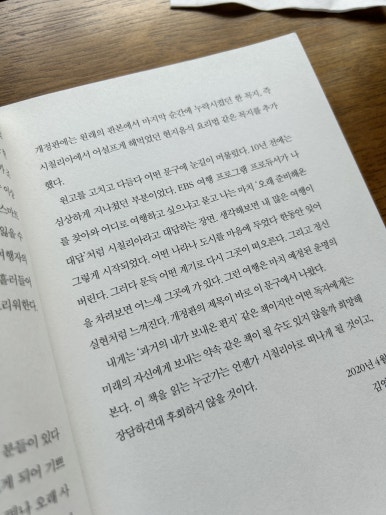 개정판에는 원래의 판본에서 마지막 순간에 누락시켰던 한 꼭지, 즉
시칠리아에서 어설프게 해먹었던 현지음식 요리법 같은 꼭지를 추가
했다.
원고를 고치고 다듬다 어떤 문구에 눈길이 머물렀다. 10년 전에는
심상하게 지나쳤던 부분이었다. EBS 여행 프로그램 프로듀서가 나
를 찾아와 어디로 여행하고 싶으냐고 묻고 나는 마치 '오래 준비해온
대답'처럼 시칠리아라고 대답하는 장면. 생각해보면 내 많은 여행이
그렇게 시작되었다. 어떤 나라나 도시를 마음에 두었다 한동안 잊어
버린다. 그러다 문득 어떤 계기로 다시 그곳이 떠오른다. 그리고 정신
을 차려보면 어느새 그곳에 가 있다. 그런 여행은 마치 예정된 운명의
실현처럼 느껴진다. 개정판의 제목이 바로 이 문구에서 나왔다.
내게는 '과거의 내가 보내온 편지' 같은 책이지만 어떤 독자에게는
미래의 자신에게 보내는 약속 같은 책이 될 수도 있지 않을까 희망해
본다. 이 책을 읽는 누군가는 언젠가 시칠리아로 떠나게 될 것이고,
장담하건대 후회하지 않을 것이다.
2020년 4월
분들이 있다
게 되어 기쁘
떠나 오래 사